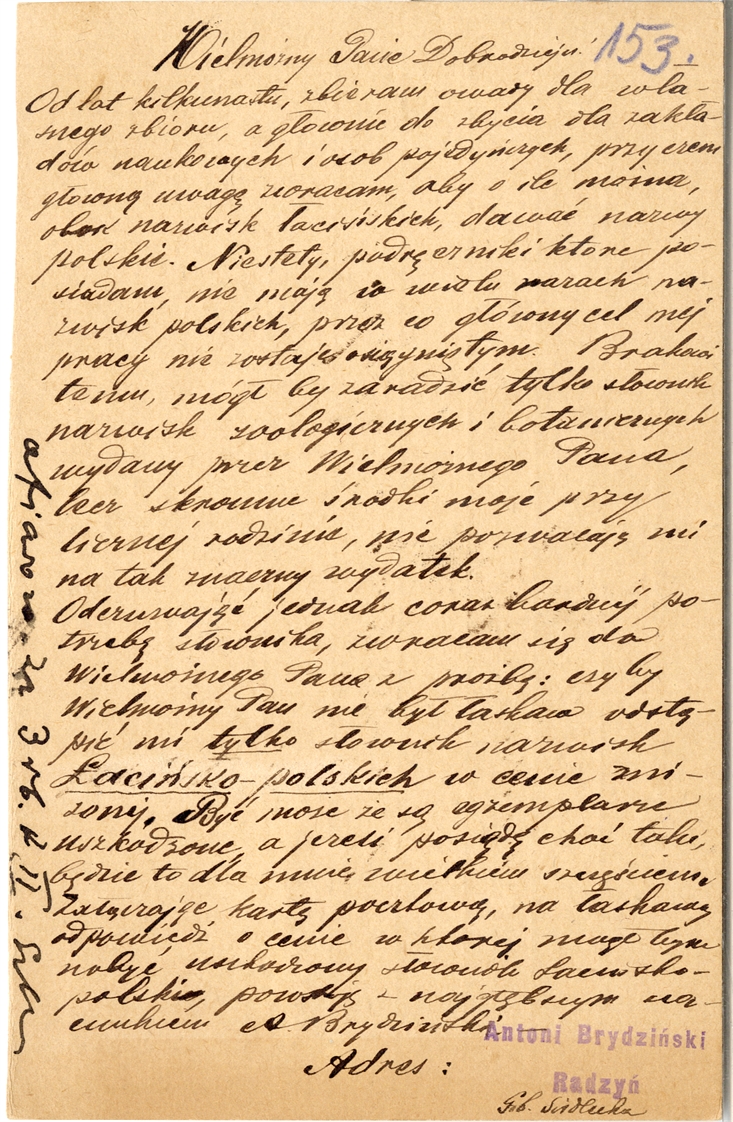 153.
Wielmożny Panie Dobrodzieju!
Od lat kilkunastu, zbieram owady dla wła-
snego zbioru, a głownie do zbycia dla zakła-
dów naukowych i osob pojedyńczych, przyczem
głowną uwagę zwracam, aby o ile można,
obok nazwisk łacińskich, dawać nazwy
polskie. Niestety, podręczniki ktore po-
siadam, nie mają w wielu razach na-
zwisk polskich, przez co główny cel mej
pracy nie zostaje osiągniętym. Brakowi
temu, mógł by zaradzić tylko słownik
nazwisk zoologicznych i botanicznych
wydany przez Wielmożnego Pana,
lecz skromne środki moje przy
licznej rodzinie, nie pozwalają mi
na tak znaczny wydatek.
Odczuwając jednak coraz bardziej po-
trzebę słownika, zwracam się do
Wielmożnego Pana z prośbą: czy by
Wielmożny Pan nie był łaskaw odstą-
pić mi tylko słownik nazwisk
Łacińsko-polskich w cenie zni-
żonej. Być może że są egzemplarze
uszkodzone, a jeżeli posiądę choć taki,
będzie to dla mnie wielkiem szczęściem.
Załączając kartę pocztową, na łaskawą
odpowiedź o cenie w ktorej mogę
nabyć uszkodzony słownik Łacińsko-
polski, z najgłębszym sza-
cunkiem A Brydziński
Antoni Brydziński
Adres:
Radzyń
Gub. Siedlecka
za 3 rb. II.